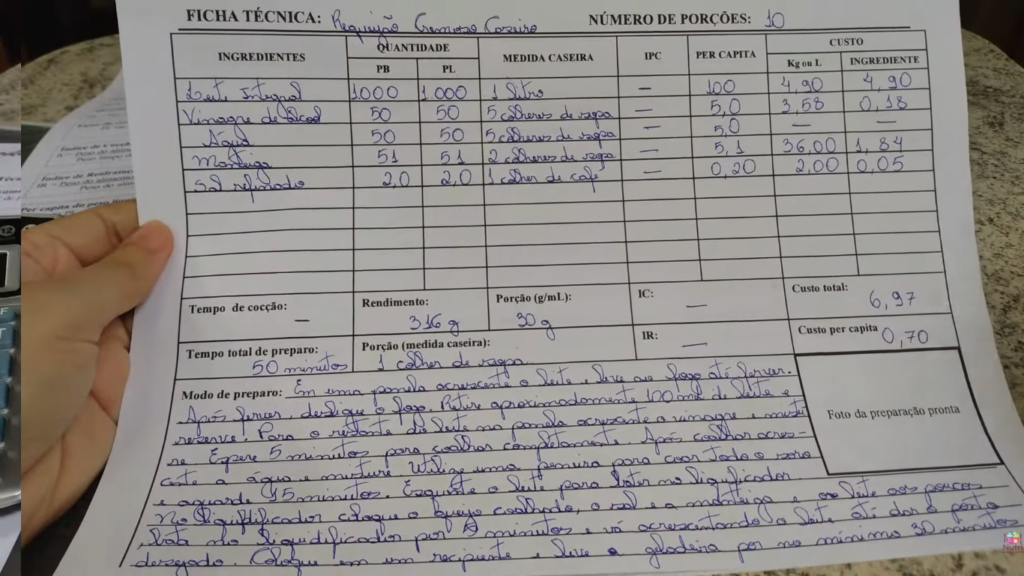 FICHA TÉCNICA: Requeijão Cremoso Caseiro NÚMERO DE PORÇÕES: 10
INGREDIENTES QUANTIDADE MEDIDA CASEIRA IPC PER CAPITA CUSTO
PB PL Kg ou L INGREDIENTE
Leite Integral 1.000 1.000 1 litro — 100 4,90 4,90
Vinagre de álcool 50 50 5 colheres de sopa — 5,0 3,58 0,18
Água 50 50 5 colheres de sopa — 5,0 — —
Manteiga 51 51 2 colheres de sopa — 5,1 36,00 1,84
Sal refinado 2,0 2,0 1 colher de café — 0,20 2,00 0,05
Tempo de cocção: — Rendimento: 316 g Porção (g/mL): 30 g IC: — Custo total: 6,97
Tempo total de preparo: 50 minutos Porção (medida caseira): 1 colher de sopa IR: — Custo per capita 0,70
Modo de preparo: Em uma panela acrescente o leite e leve ao fogo até ferver.
Após ferver, desligue o fogo. Retire aproximadamente 100 ml de leite e
reserve. Para o restante do leite na panela acrescente o vinagre e mistu
re. Espere 5 minutos para coalhar completamente. Após coalhar acres-
cente a água e misture. Utilize uma peneira para coar todo o soro
e aguarde 15 minutos. Esquente o leite para bater no liquificador.
No liquificador coloque o queijo coalhado, o sal e a manteiga e o leite aos poucos
, bata no liquidificador por minutos e vá acrescentando o leite até dar o ponto
desejado. Coloque em um recipiente e leve a geladeira por no mínimo 30 minutos
Foto da preparação pronta